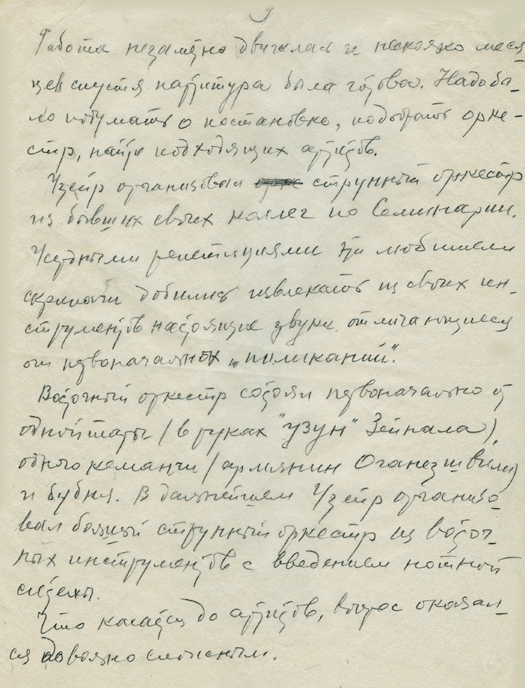 9
Работа незаметно двигалась и несколько меся-
цев спустя партитура была готова. Надо бы-
ло подумать о постановке, подобрать орке-
стр, найти подходящих артистов.
Узеир организовал струнный оркестр
из бывших своих коллег по Семинарии.
Усердными репетициями эти любители
скрипачи добились извлекать из своих ин-
струментов настоящие звуки отличающиеся
от первоначальных „пиликаний".
Восточный оркестр состоял первоначально из
одной тары (в руках "узун" Зейнала),
одного кеманчи (армянин Оганезашвили)
и бубна. В дальнейшем Узеир организо-
вал большой струнный оркестр из восточ-
ных инструментов с введением нотной
системы.
Что касается до артистов, вопрос оказал-
ся довольно сложным.